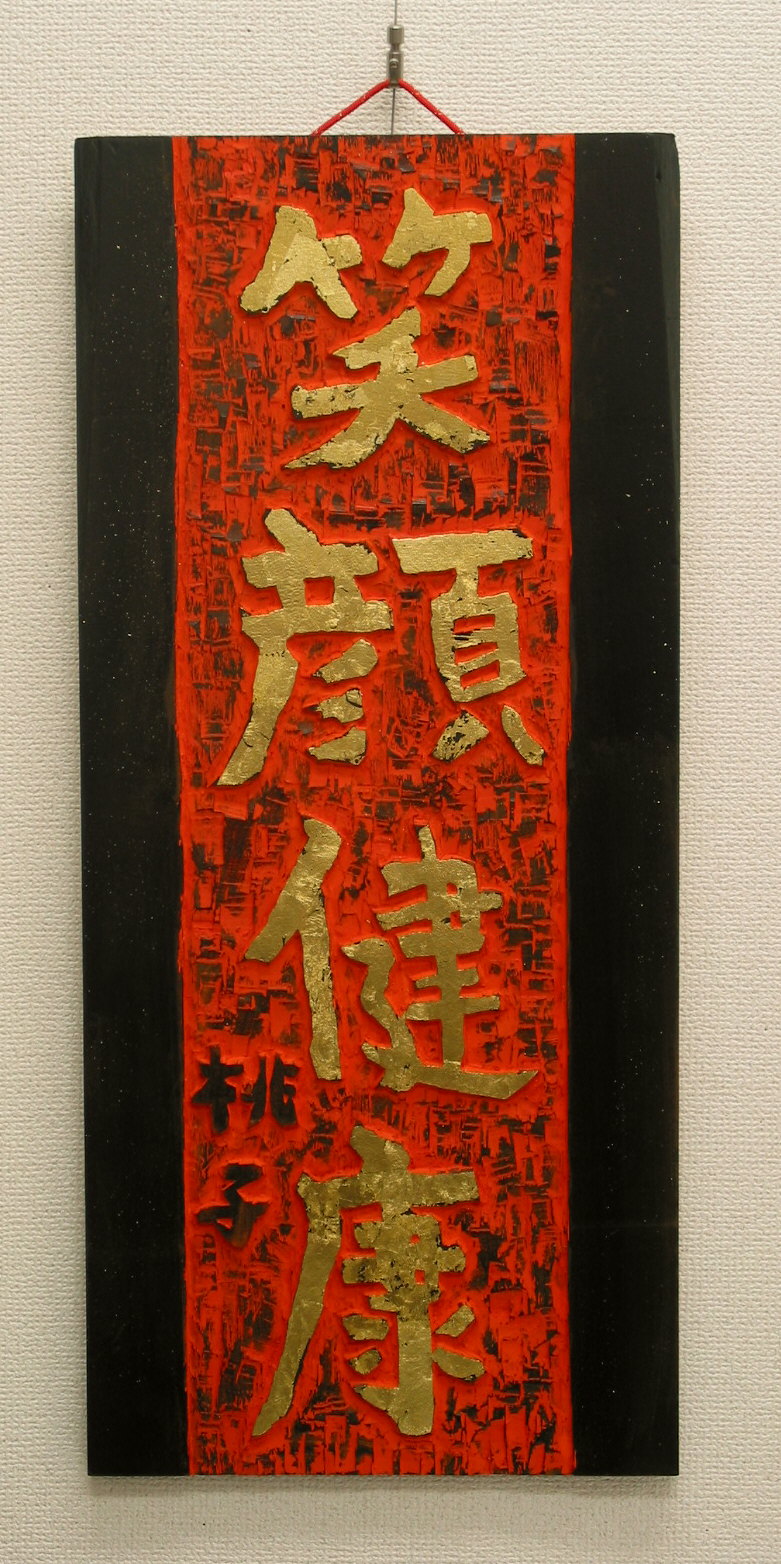 笑顔健康
桃子